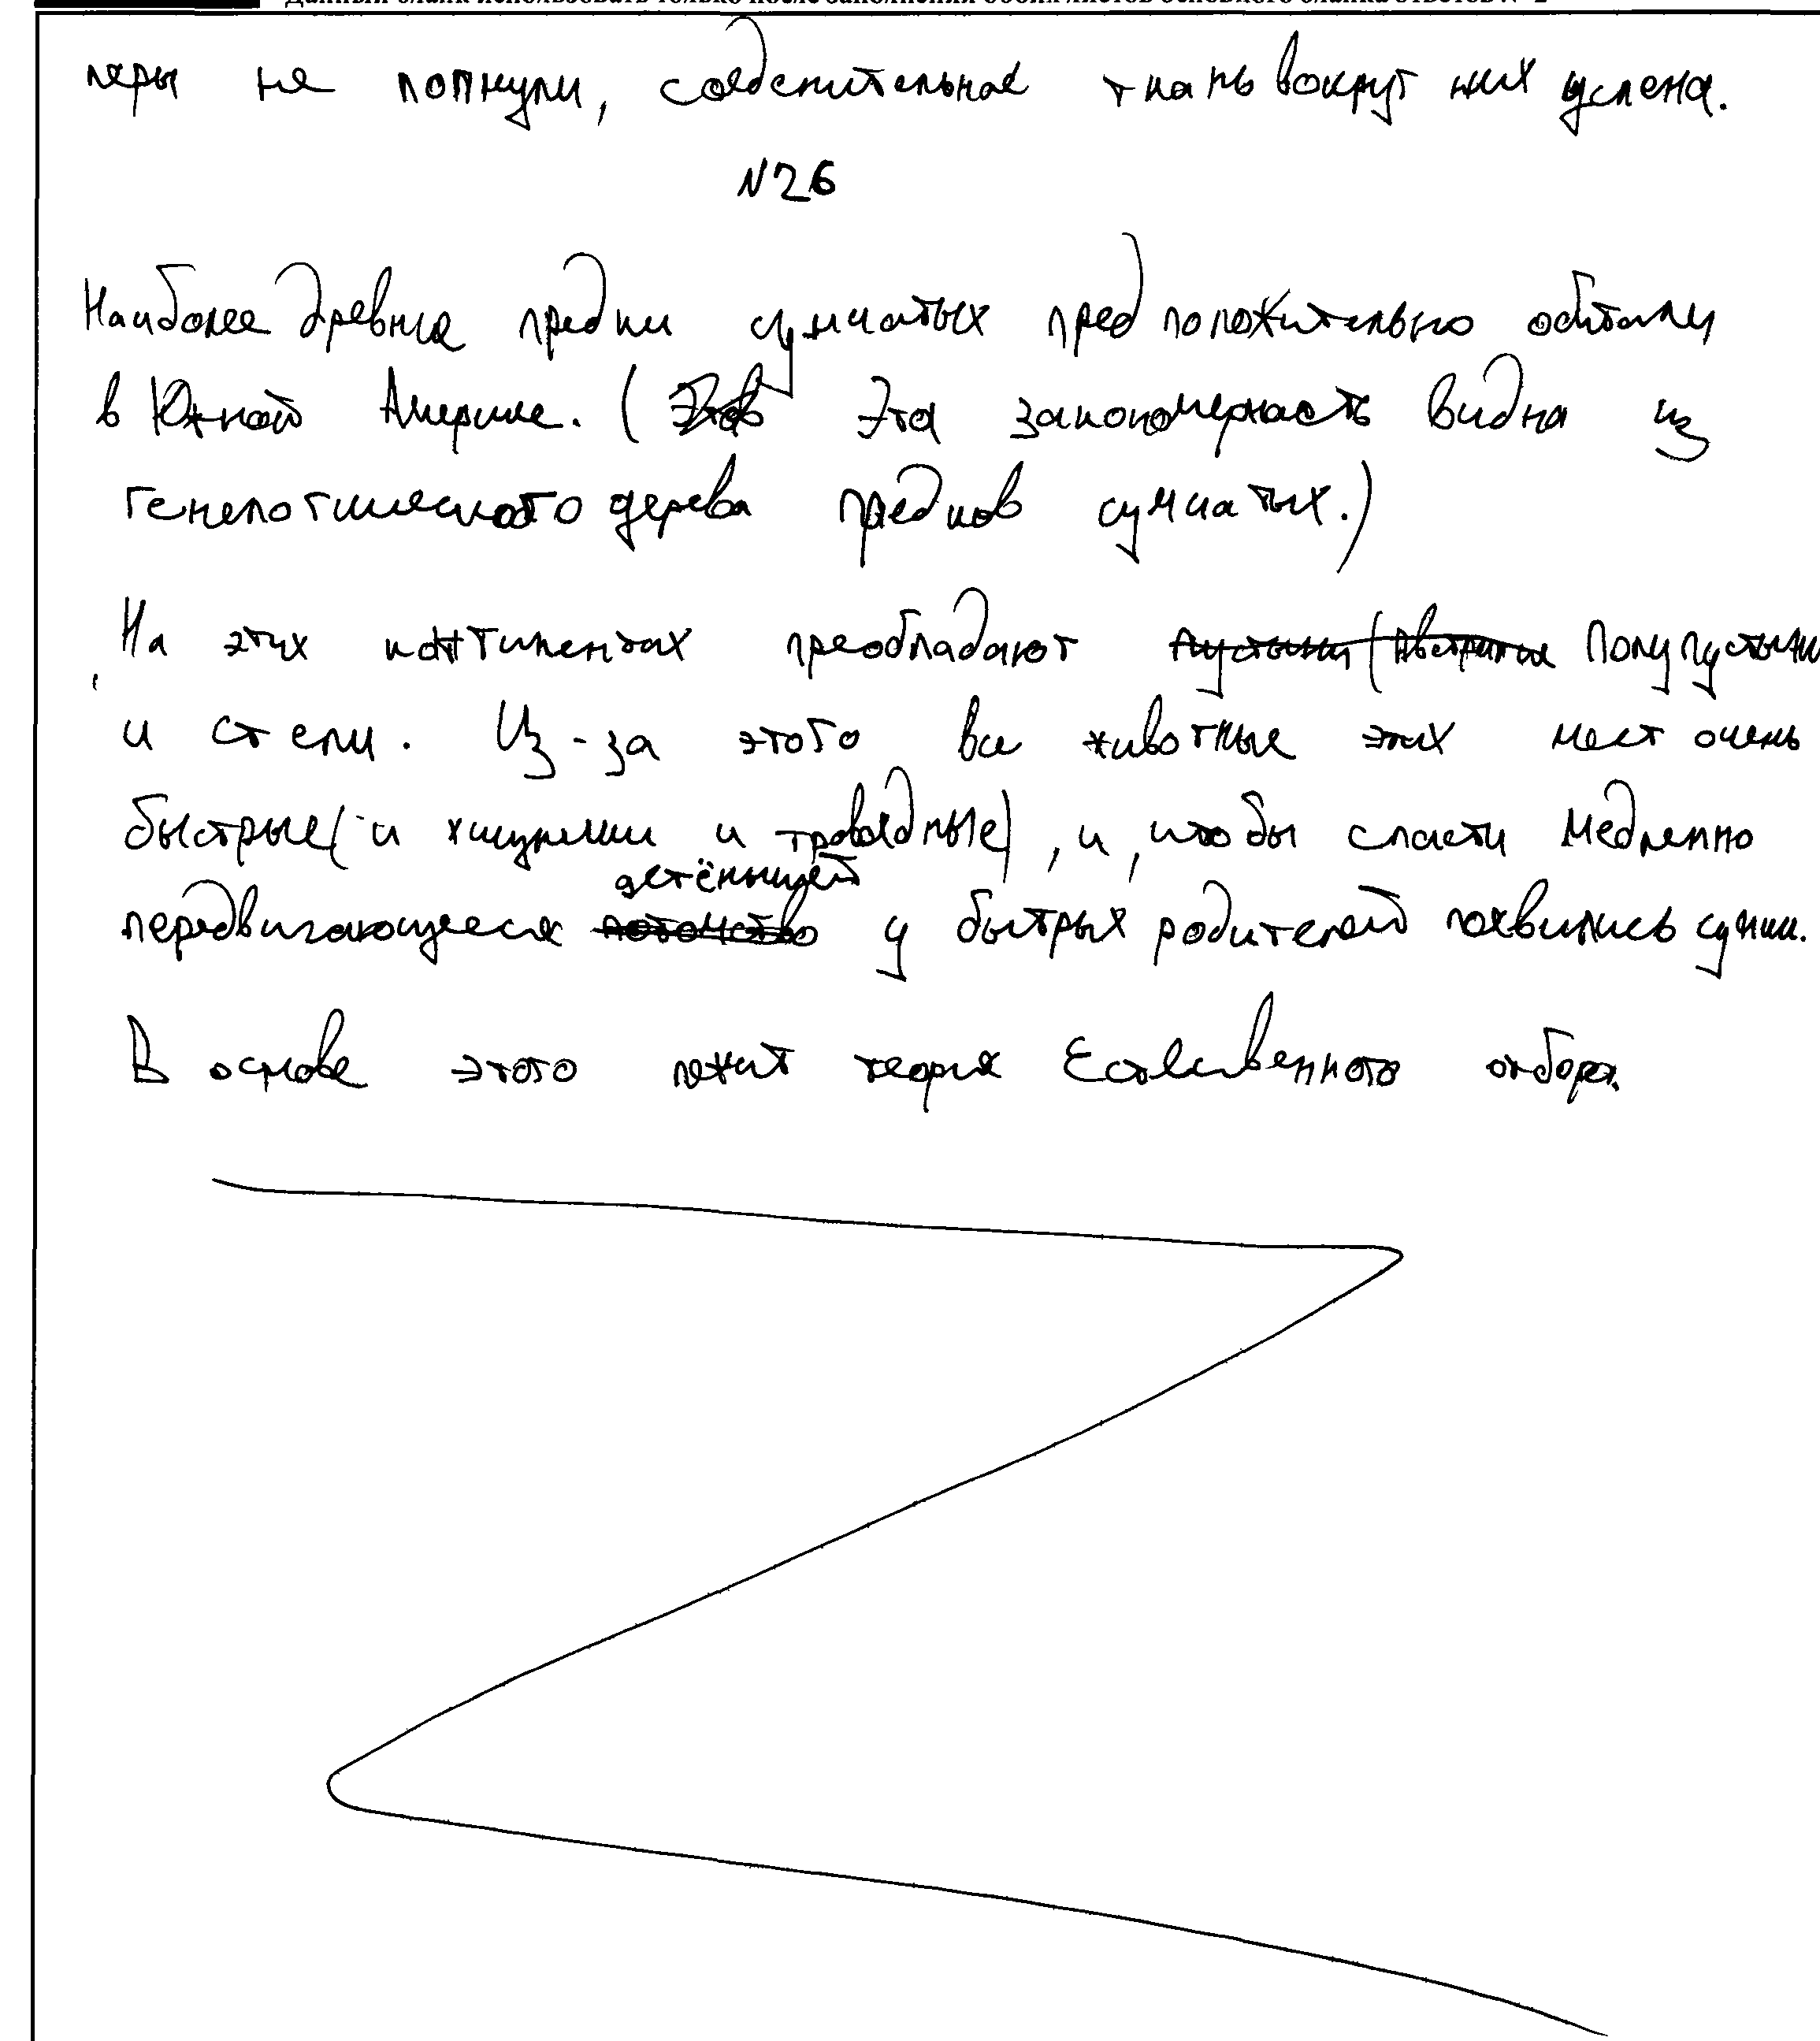 Данный бланк использовать только после заполнения обоих листов основного бланка ответов № 2
перы не лопнули, соеденительная ткань вокруг них целена.
N26
Наиболее древние предки сумчатых предположительно обитали
в Южной Америке. ( Эта закономерность видна из
генелогического дерева предков сумчатых.)
На этих континентах преобладают пустыни (Австралия полупустыни
и степи. Из-за этого все животные этих мест очень
быстрые (и хищники и травоядные), и, чтобы спасти медленно
детёнышей
передвигающееся потомство у быстрых родителей появились сумки.
В основе этого лежит теория Естественного отбора.